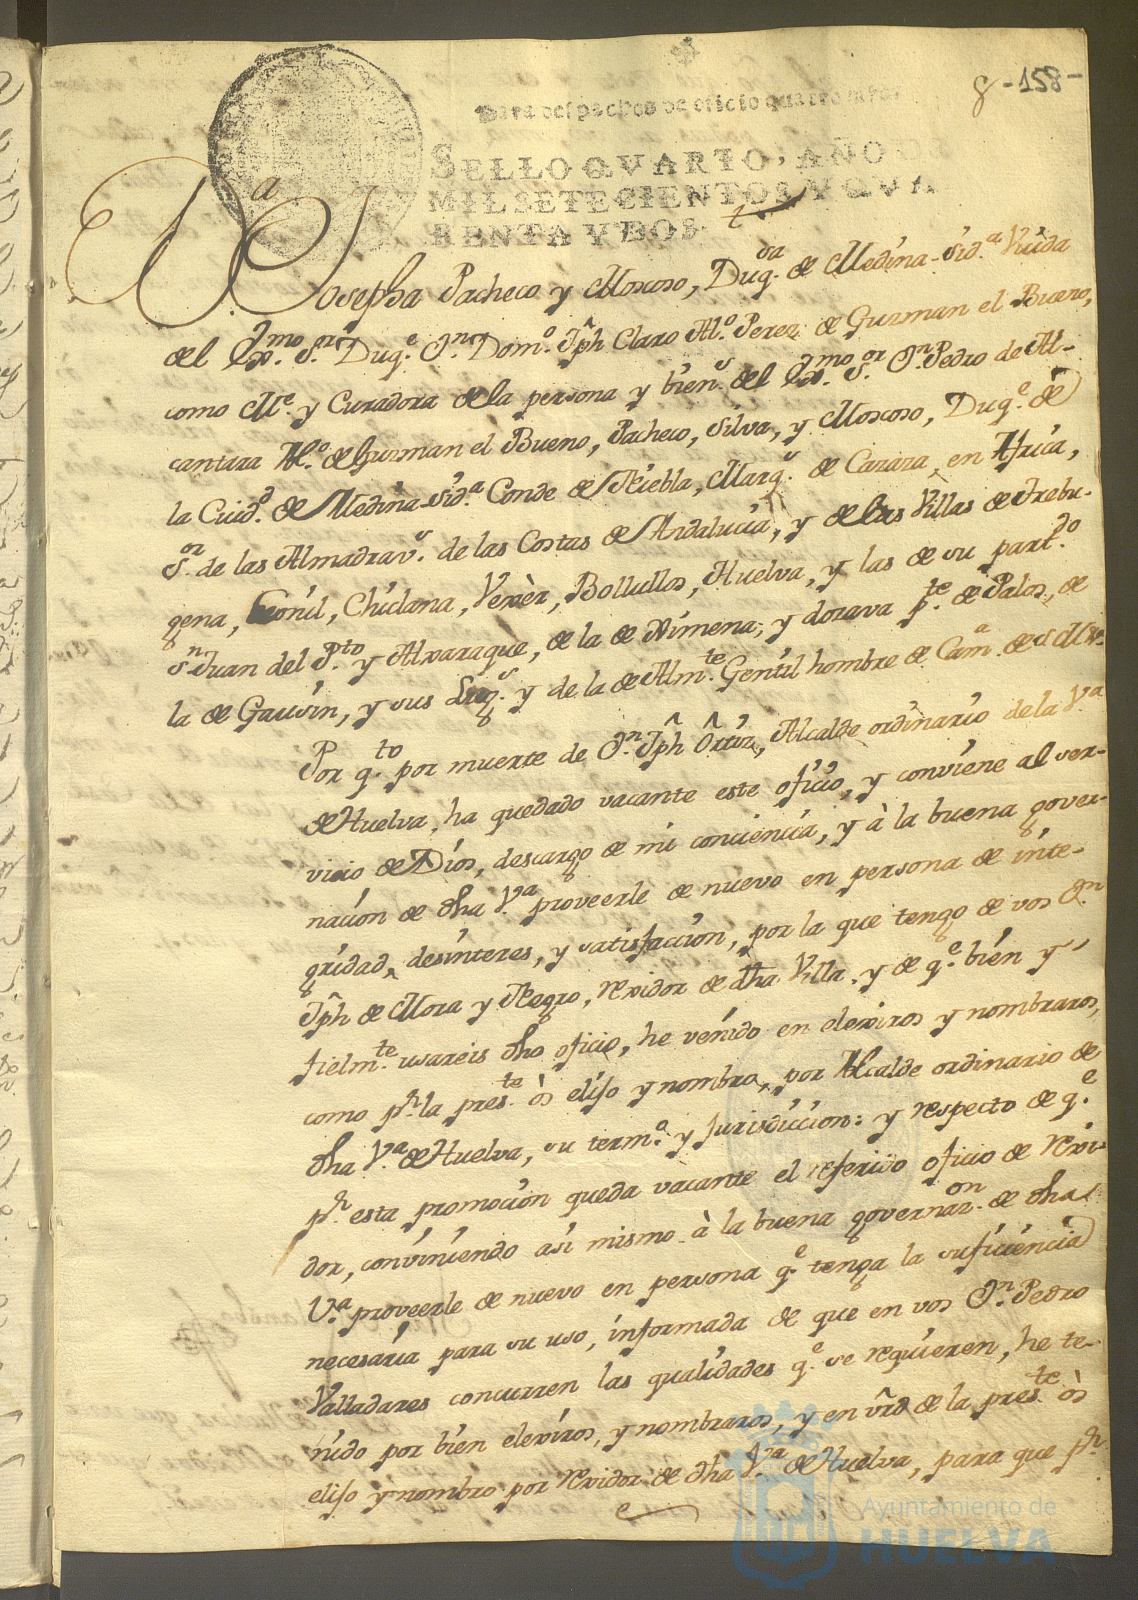 8-158-
Para despachos de oficio quatro mrs.
SELLO QVARTO, AÑO
MIL SETECIENTOS Y QVA
RENTA Y DOS.
D.ª Josepha Pacheco y Moscoso, Duq.sa de Medina-Sid.ª Viuda
de el Ex.mo S.or Duq.e D.n Dom.o Jph Claro Al.o Perez de Guzman el Bueno,
como M.e y Curadora de la persona y bien.s de el Ex.mo S.or D.n Pedro de Al-
cantara Al.o de Guzman el Bueno, Pacheco, Silva, y Moscoso, Duq.e de
la Ciud.d de Medina-Sid.ª Conde de Niebla, Marq.s de Cazaza en Africa,
S.or de las Almadrav.s de las Costas de Andalucia, y de las Villas de Trebu-
gena, Conil, Chiclana, Vexèr, Bollullos, Huelva, y las de su part.do
S.n Juan del P.to y Alxaraque, de la de Ximena, y dozava p.te de Palos, de
la de Gausin, y sus Lug.s y de la de Alm.te Gentil hombre de Cam.a de S M &.
Por q.to por muerte de D.n Jph Ortiz, Alcalde ordinario de la V.a
de Huelva, ha quedado vacante este oficio, y conviene al ser-
vicio de Dios, descargo de mi conciencia, y à la buena gover-
nacion de dha V.a proveerle de nuevo en persona de inte-
gridad, desinteres, y satisfaccion, por la que tengo de vos D.n
Jph de Mora y Negro, rexidor de dha Villa, y de q.e bien y
fielm.te usareis dho oficio, he venido en elexiros y nombraros,
como p.r la pres.te òs elijo y nombro, por Alcalde ordinario de
dha V.a de Huelva, su term.o y Jurisdiccion: y respecto de q.e
p.r esta promocion queda vacante el referido oficio de rexi-
dor, conviniendo asi mismo à la buena governaz.on de dha
V.a proveerle de nuevo en persona q.e tenga la suficiencia
necesaria para su uso, informada de que en vos D.n Pedro
Valladares concurren las qualidades q.e se requieren, he te-
nido por bien elexiros, y nombraros, y en vrd de la pres.te òs
elijo y nombro por rexidor de dha V.a de Huelva, para que p.r
Ayuntamiento de
HUELVA